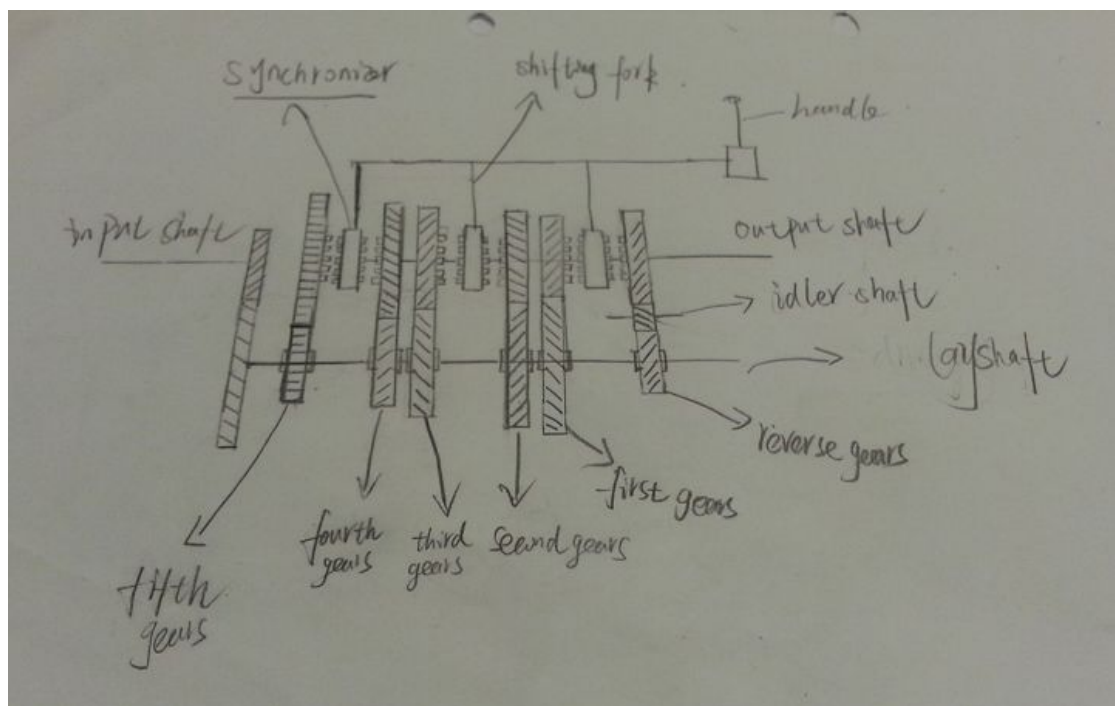 synchronizer
shifting fork
handle
input shaft
output shaft
idler shaft
layshaft
reverse gears
first gears
fourth
gears
third
gears
second gears
fifth
gears